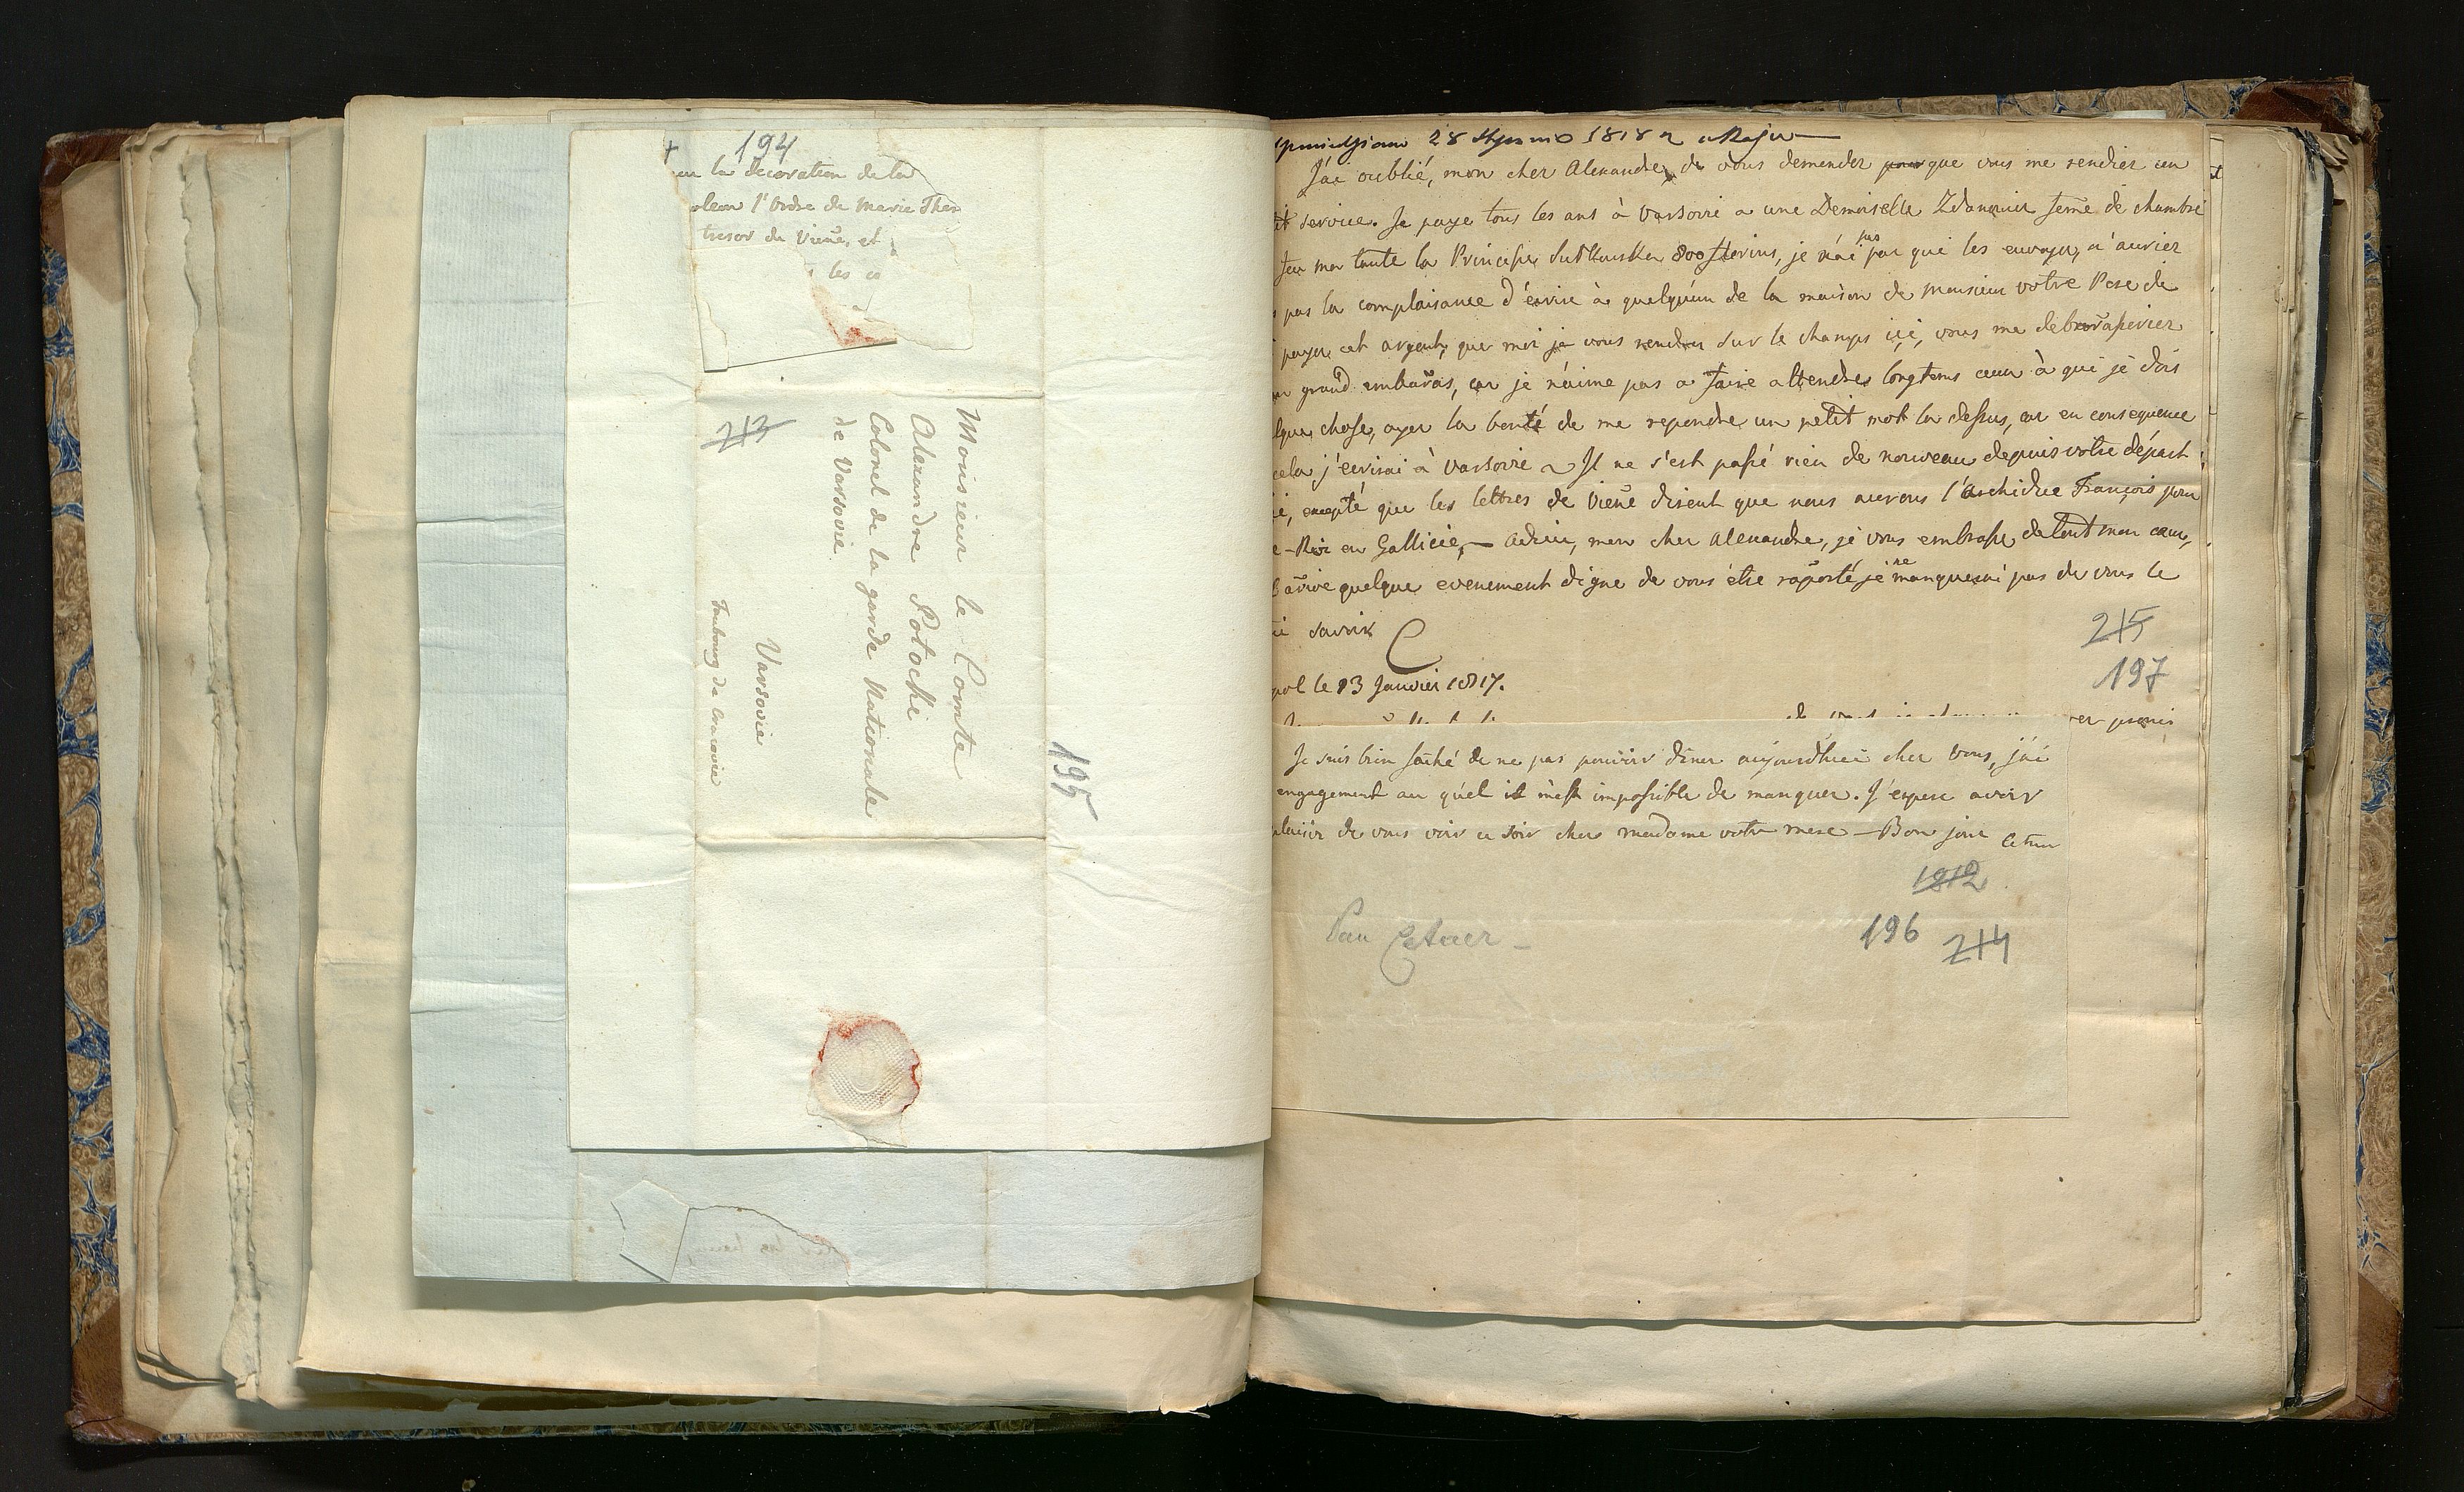 194
la decoration de la
l'Ordre de Marie Ther
tresor de Viene, et
les
213
Monsieur le Comte
Alexandre Potocki
Colonel de la garde Nationale
de Varsovie
Varsovie
Faubourg de Cracovie
195
28 1818
J'ai oublié, mon cher Alexandre, de vous demender que vous me rendier un
service. Je paye tous les ans à Varsovie a une Demoiselle feme de chambre
feu ma tante la Princesse 800 florins, je n'ai pas par qui les envoyer, n'aurier
pas la complaisance d'écrire à quelqu'un de la maison de monsieur votre Pere de
payer cet argent, que moi je vous rendrer sur le champs ici, vous me debarasserier
grand embaras, car je n'aime pas a faire attendre longtems ceux à qui je dois
chose, ayer la bonté de me repondre un petit mot la dessus, car en consequence
cela j'ecrirai à Varsovie Il ne s'est passé rien de nouveau depuis votre départ
excepté que les lettres de Viene disent que nous aurons l'Archiduc François pour
-Roi en Gallicie, — adieu, mon cher Alexandre, je vous embrasse de tout mon coeur,
arive quelque evenement digne de vous être raporté je ne manquerai pas de vous le
savoir C
215
197
le 13 Janvier 1817.
Je suis bien faché de ne pas pouvoir diner aujourd'hui cher vous, j'ai
engagement au quel il m'est impossible de manquer. J'espere avoir
plaisir de vous voir ce soir cher madame votre mere — Bon jour Cetner
1812
Pan Cetner —
196
214